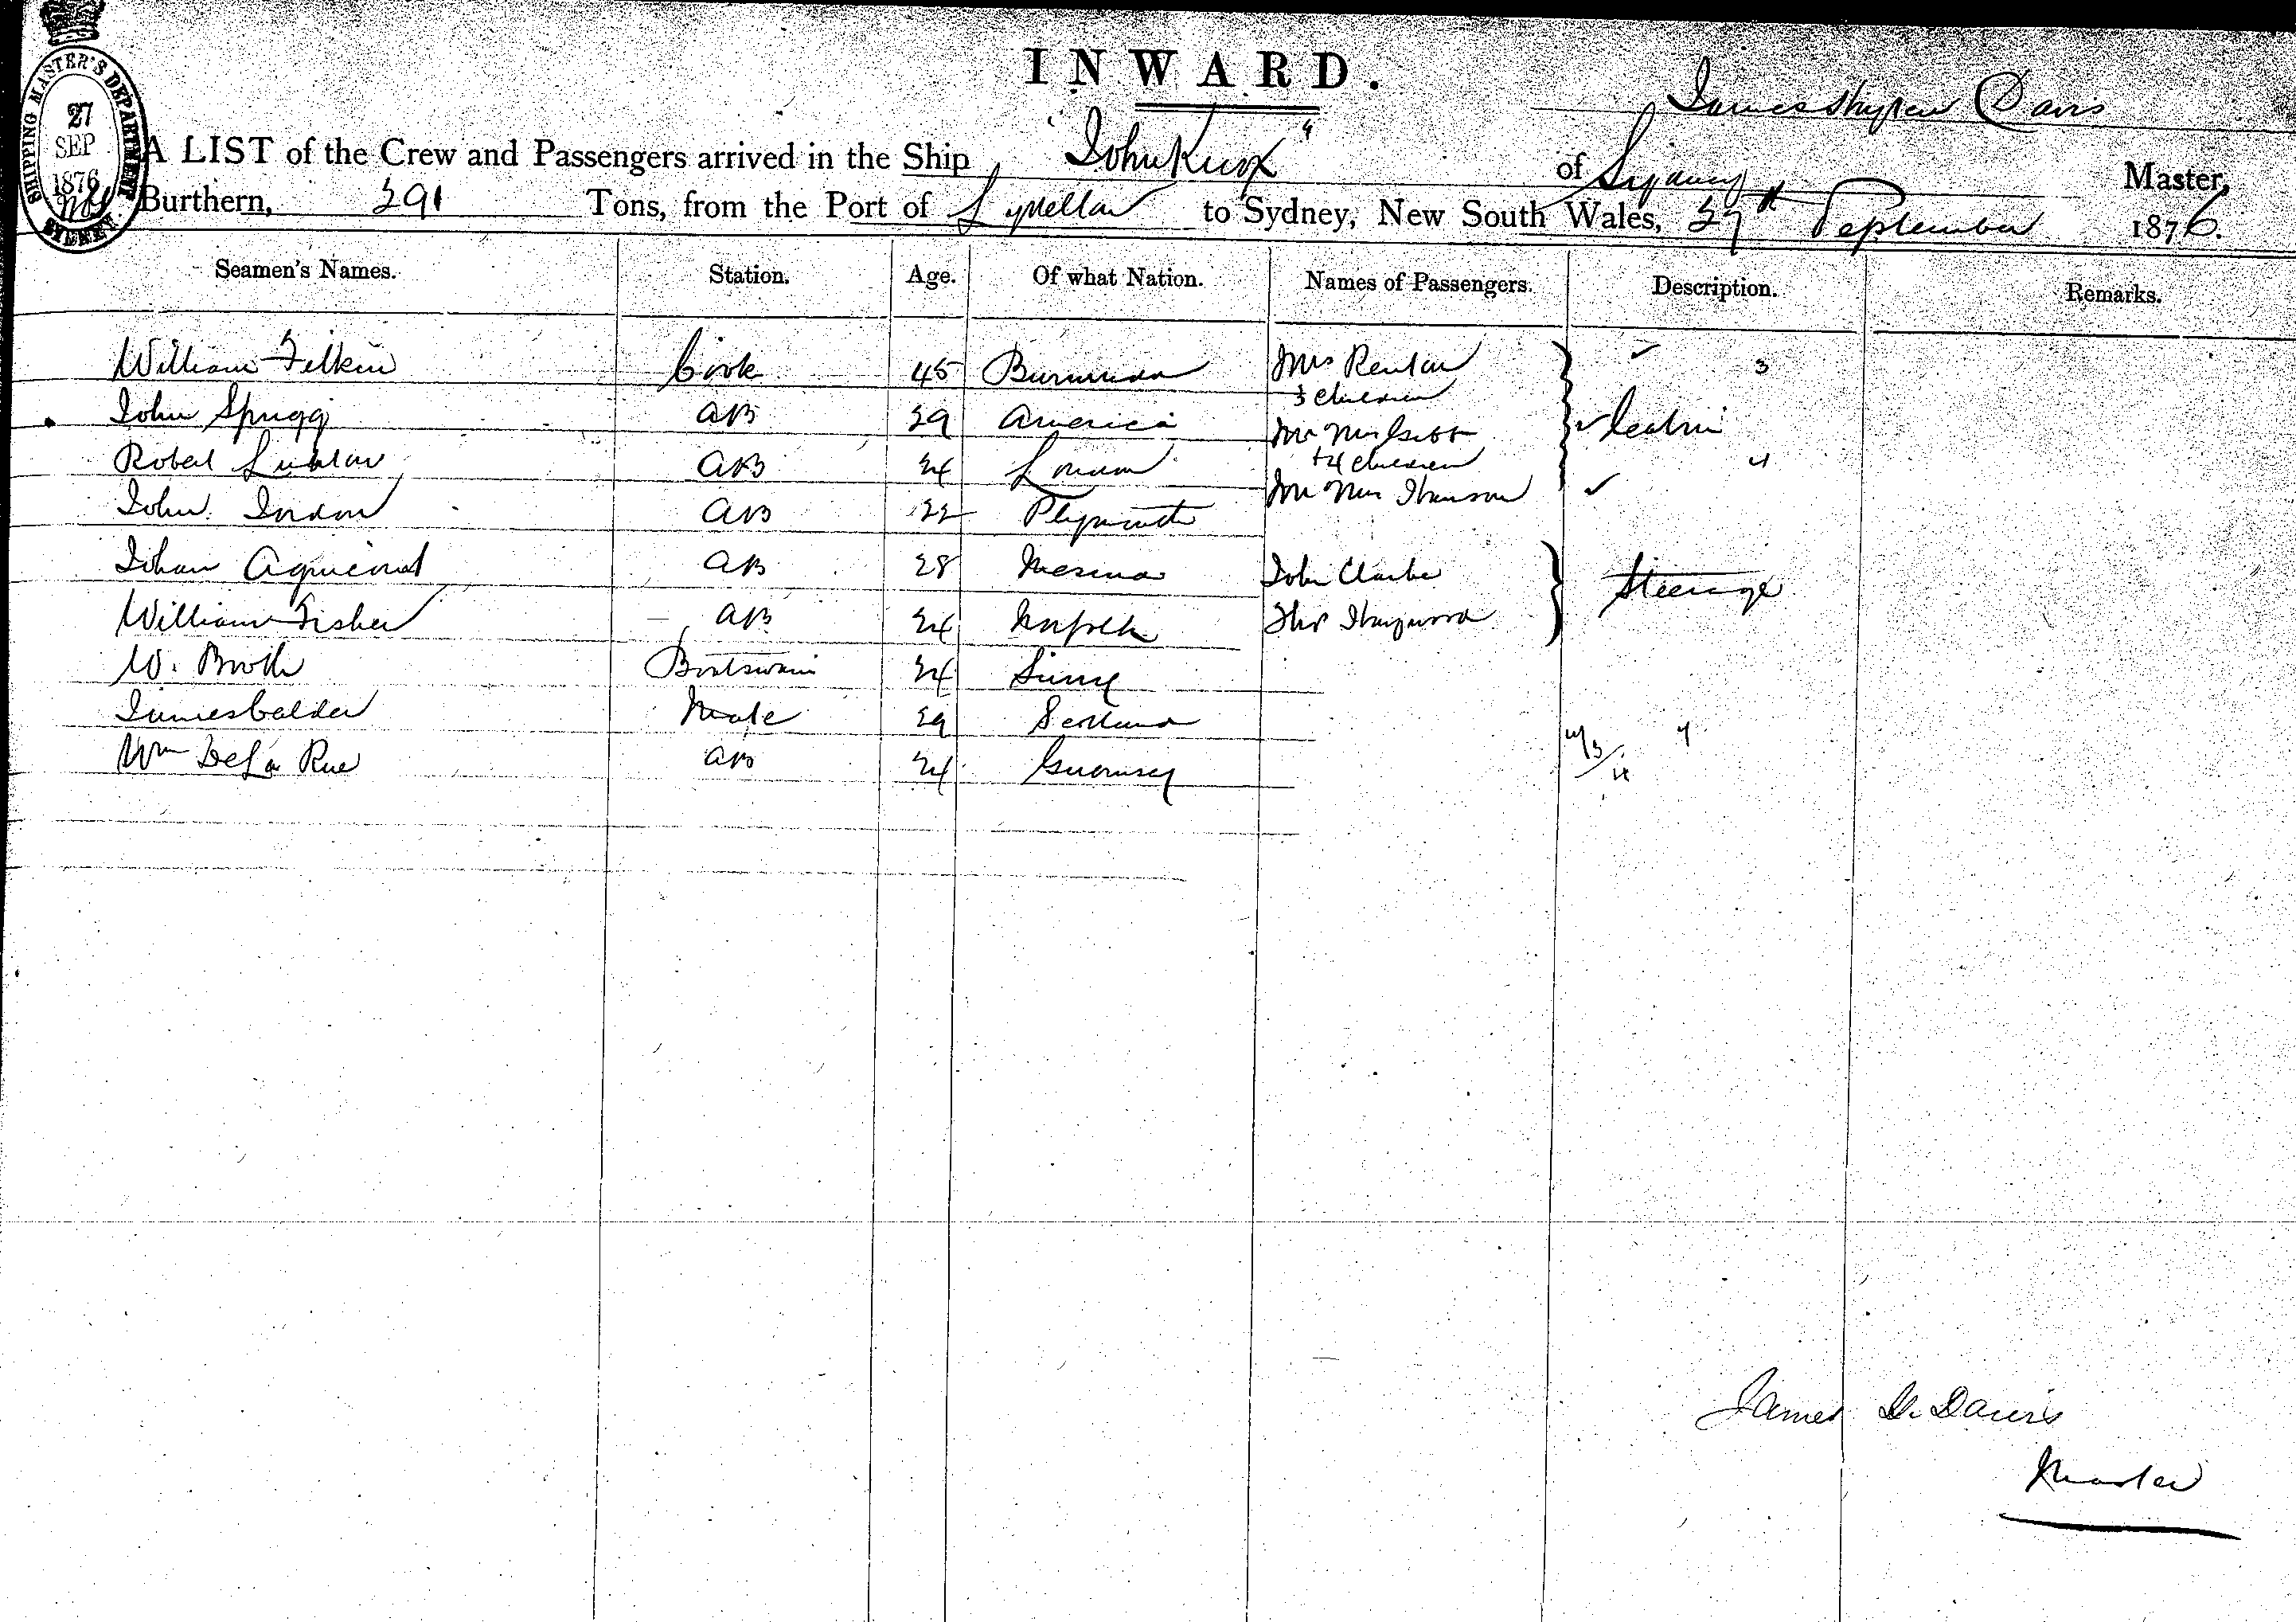 INWARD.
SHIPPING MASTER'S DEPARTMENT
27
SEP
1876
SYDNEY.
James Davis
A LIST of the Crew and Passengers arrived in the Ship "John Knox" of Sydney Master,
Burthern, 291 Tons, from the Port of to Sydney, New South Wales, 27th September 1876.
Seamen's Names. Station. Age. Of what Nation. Names of Passengers. Description. Remarks.
William Filkin Cook 45 Burmuda Mrs Renton 3
3 children
John Sprigg AB 29 America Mr Mrs Gibb Cabin
+4 children 4
Robert AB 24 London Mr Mrs
John AB 22 Plymouth
Johan AB 28 John Clarke Steerage
William Fisher AB 24 Norfolk Thos Haywood
W. Booth Boatswain 24
James Calder Mate 29 Scotland
Wm De La Rue AB 24 Guernsey
James D. Davis
Master